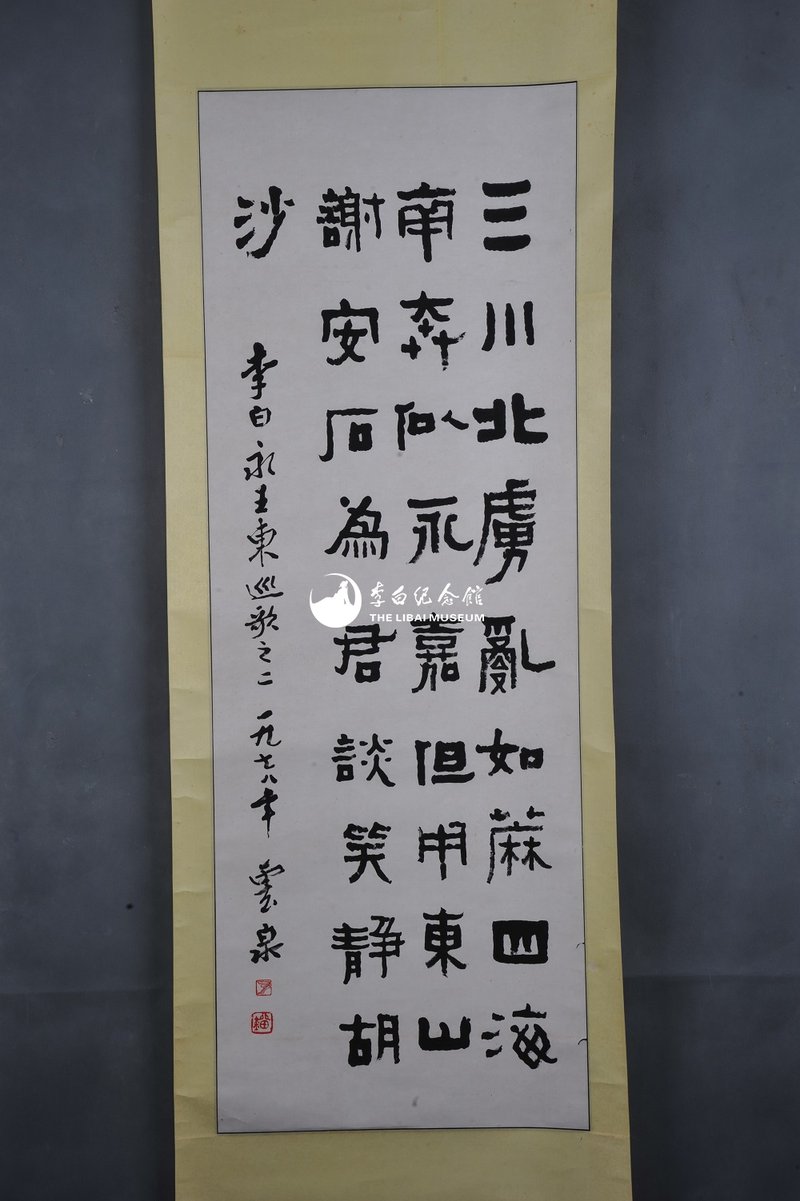 三川北虜亂如蔴四海
南奔似永嘉但用東山
謝安石為君談笑静胡
沙
李白永王東巡歌之二 一九七八年 雲泉
李白纪念館
THE LIBAI MUSEUM